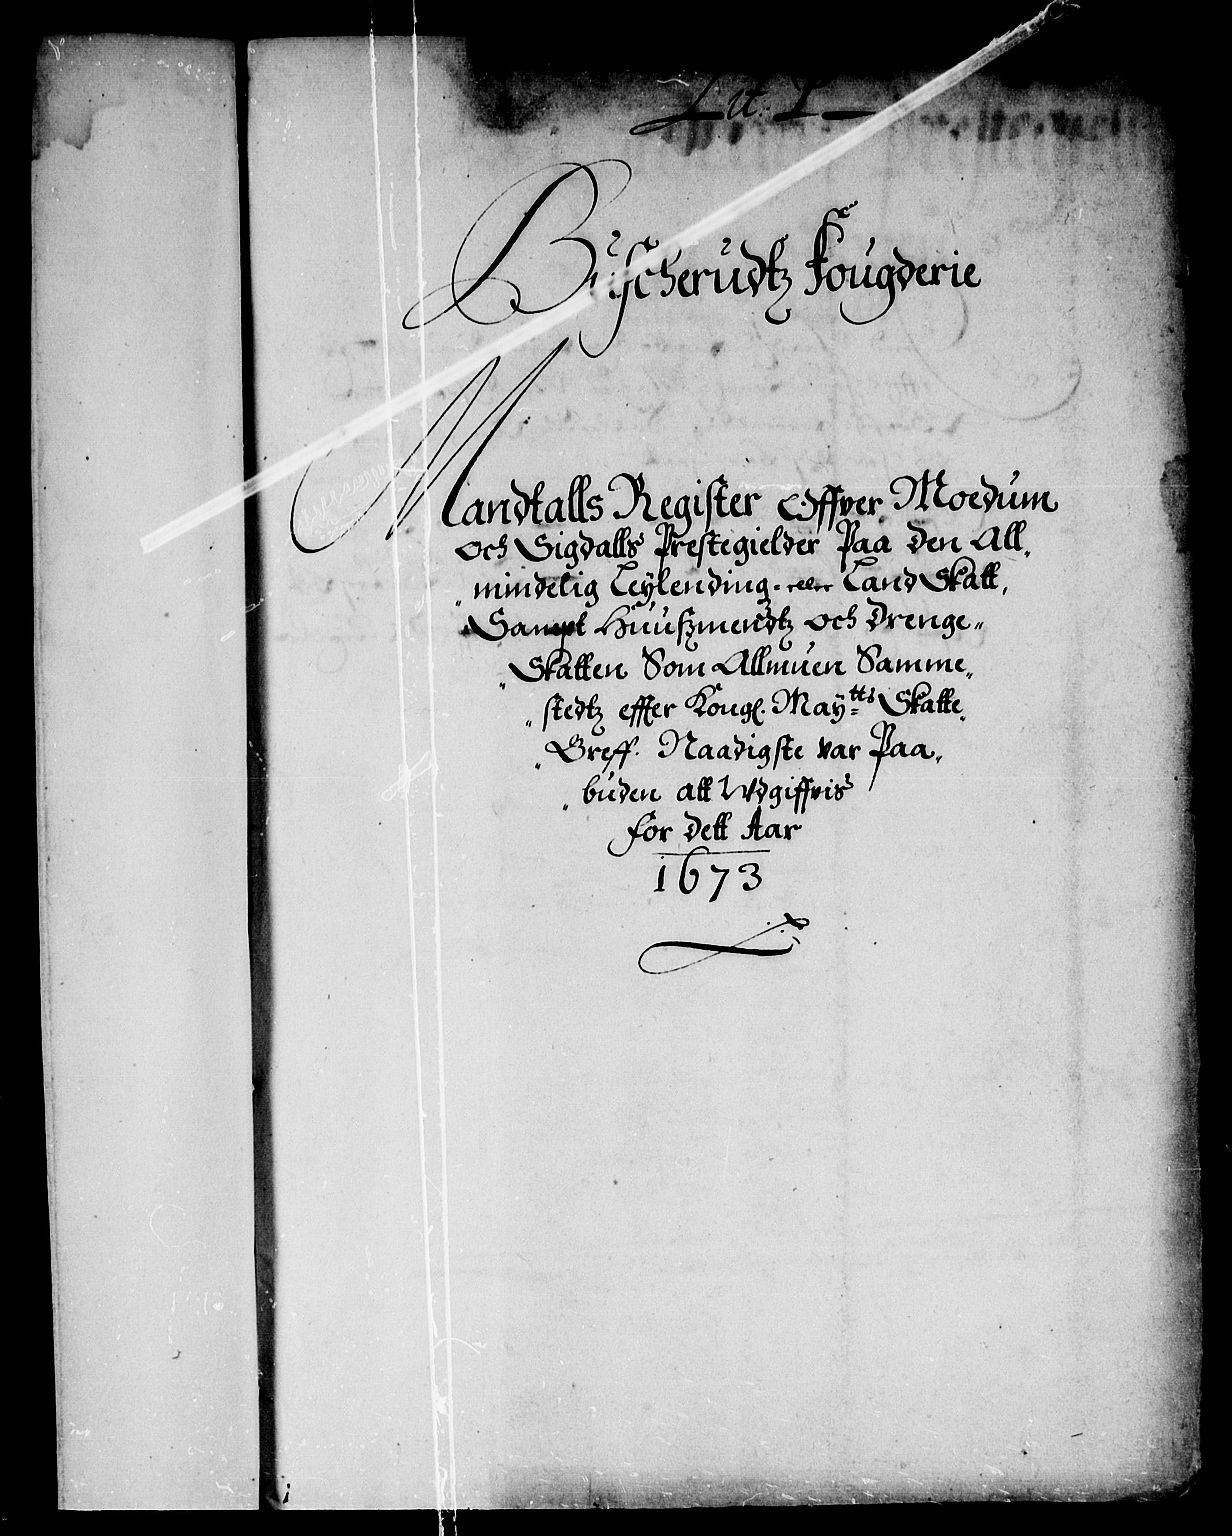 Lit: L
Büscherüdtz Fougderie
Mandtalls Register Offver Moedum
och Sigdalls Prestegielder Paa den All,
„mindelig Leylending- eller Land Skatt,
Sampt Huuszmendtz och Drenge„
„Skatten Som Allmuen Samme„
„stedtz effter Kongl. May:tts Skatte„
„Breff. Naadigste var Paa„
„buden att Wdgiffvis
for dett Aar
1673